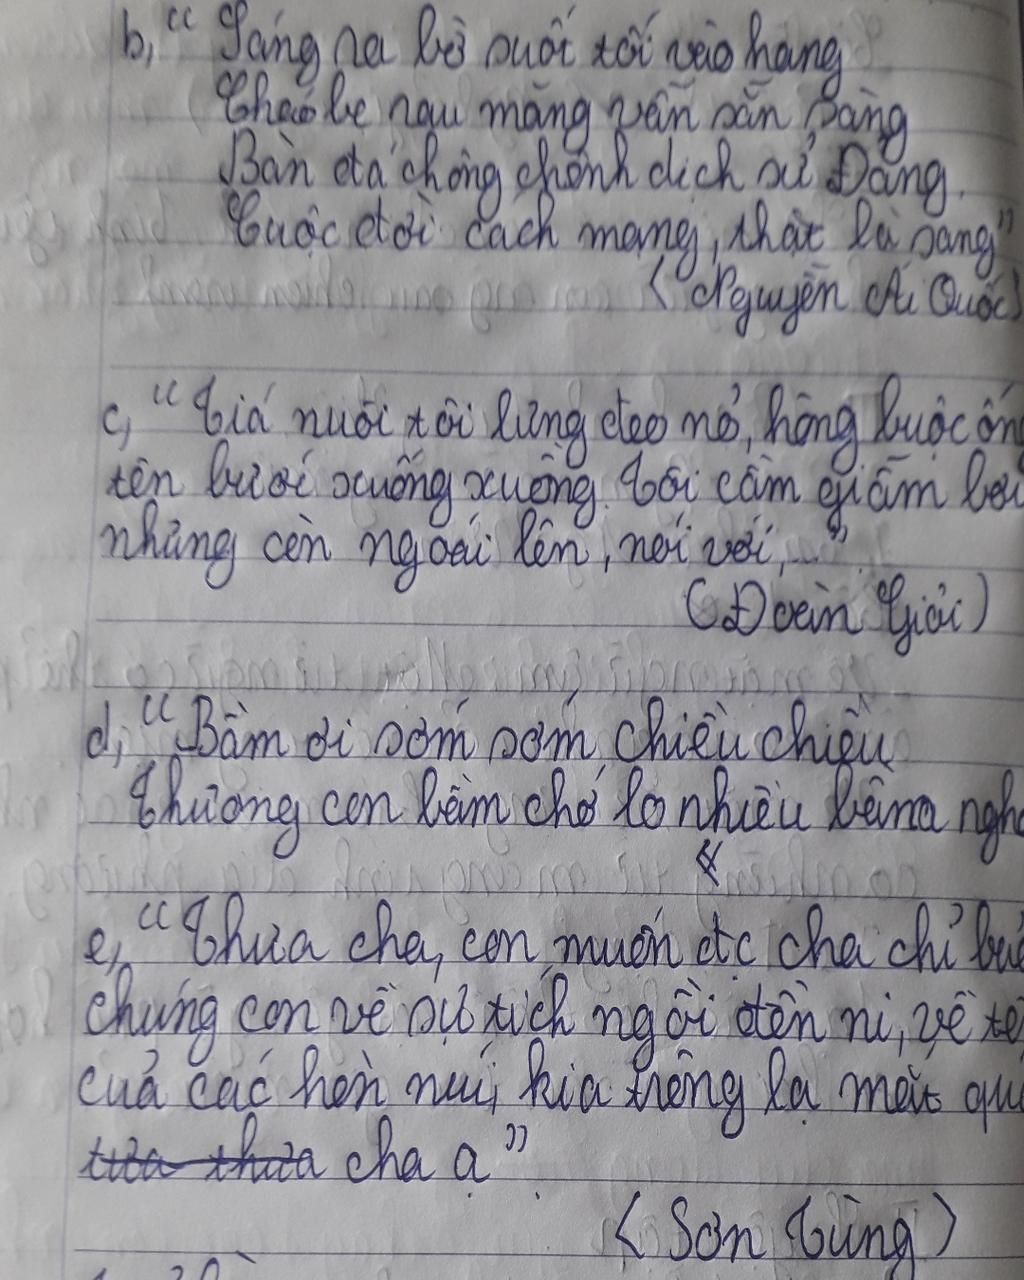 b, "Sáng ra bờ suối tối vào hang
Cháo bẹ rau măng vẫn sẵn sàng
Bàn đá chông chênh dịch sử Đảng.
Cuộc đời cách mạng, thật là sang"
(Nguyễn Ái Quốc)
c, "Tiá nuôi tôi lưng đeo nỏ, hông buộc ống
tên bước xuống xuồng. Tôi cầm giầm bơi
những còn ngoái lên, nói với,..."
(Đoàn Giỏi)
d, "Bầm ơi sớm sớm chiều chiều
Thương con bầm chớ lo nhiều bầm ngh
"
e, "Thưa cha, con muốn đc cha chỉ
chúng con về sự tích ngôi đền ni, về
của các hòn núi, kia trông lạ mắt
cha ạ"
(Sơn Tùng)